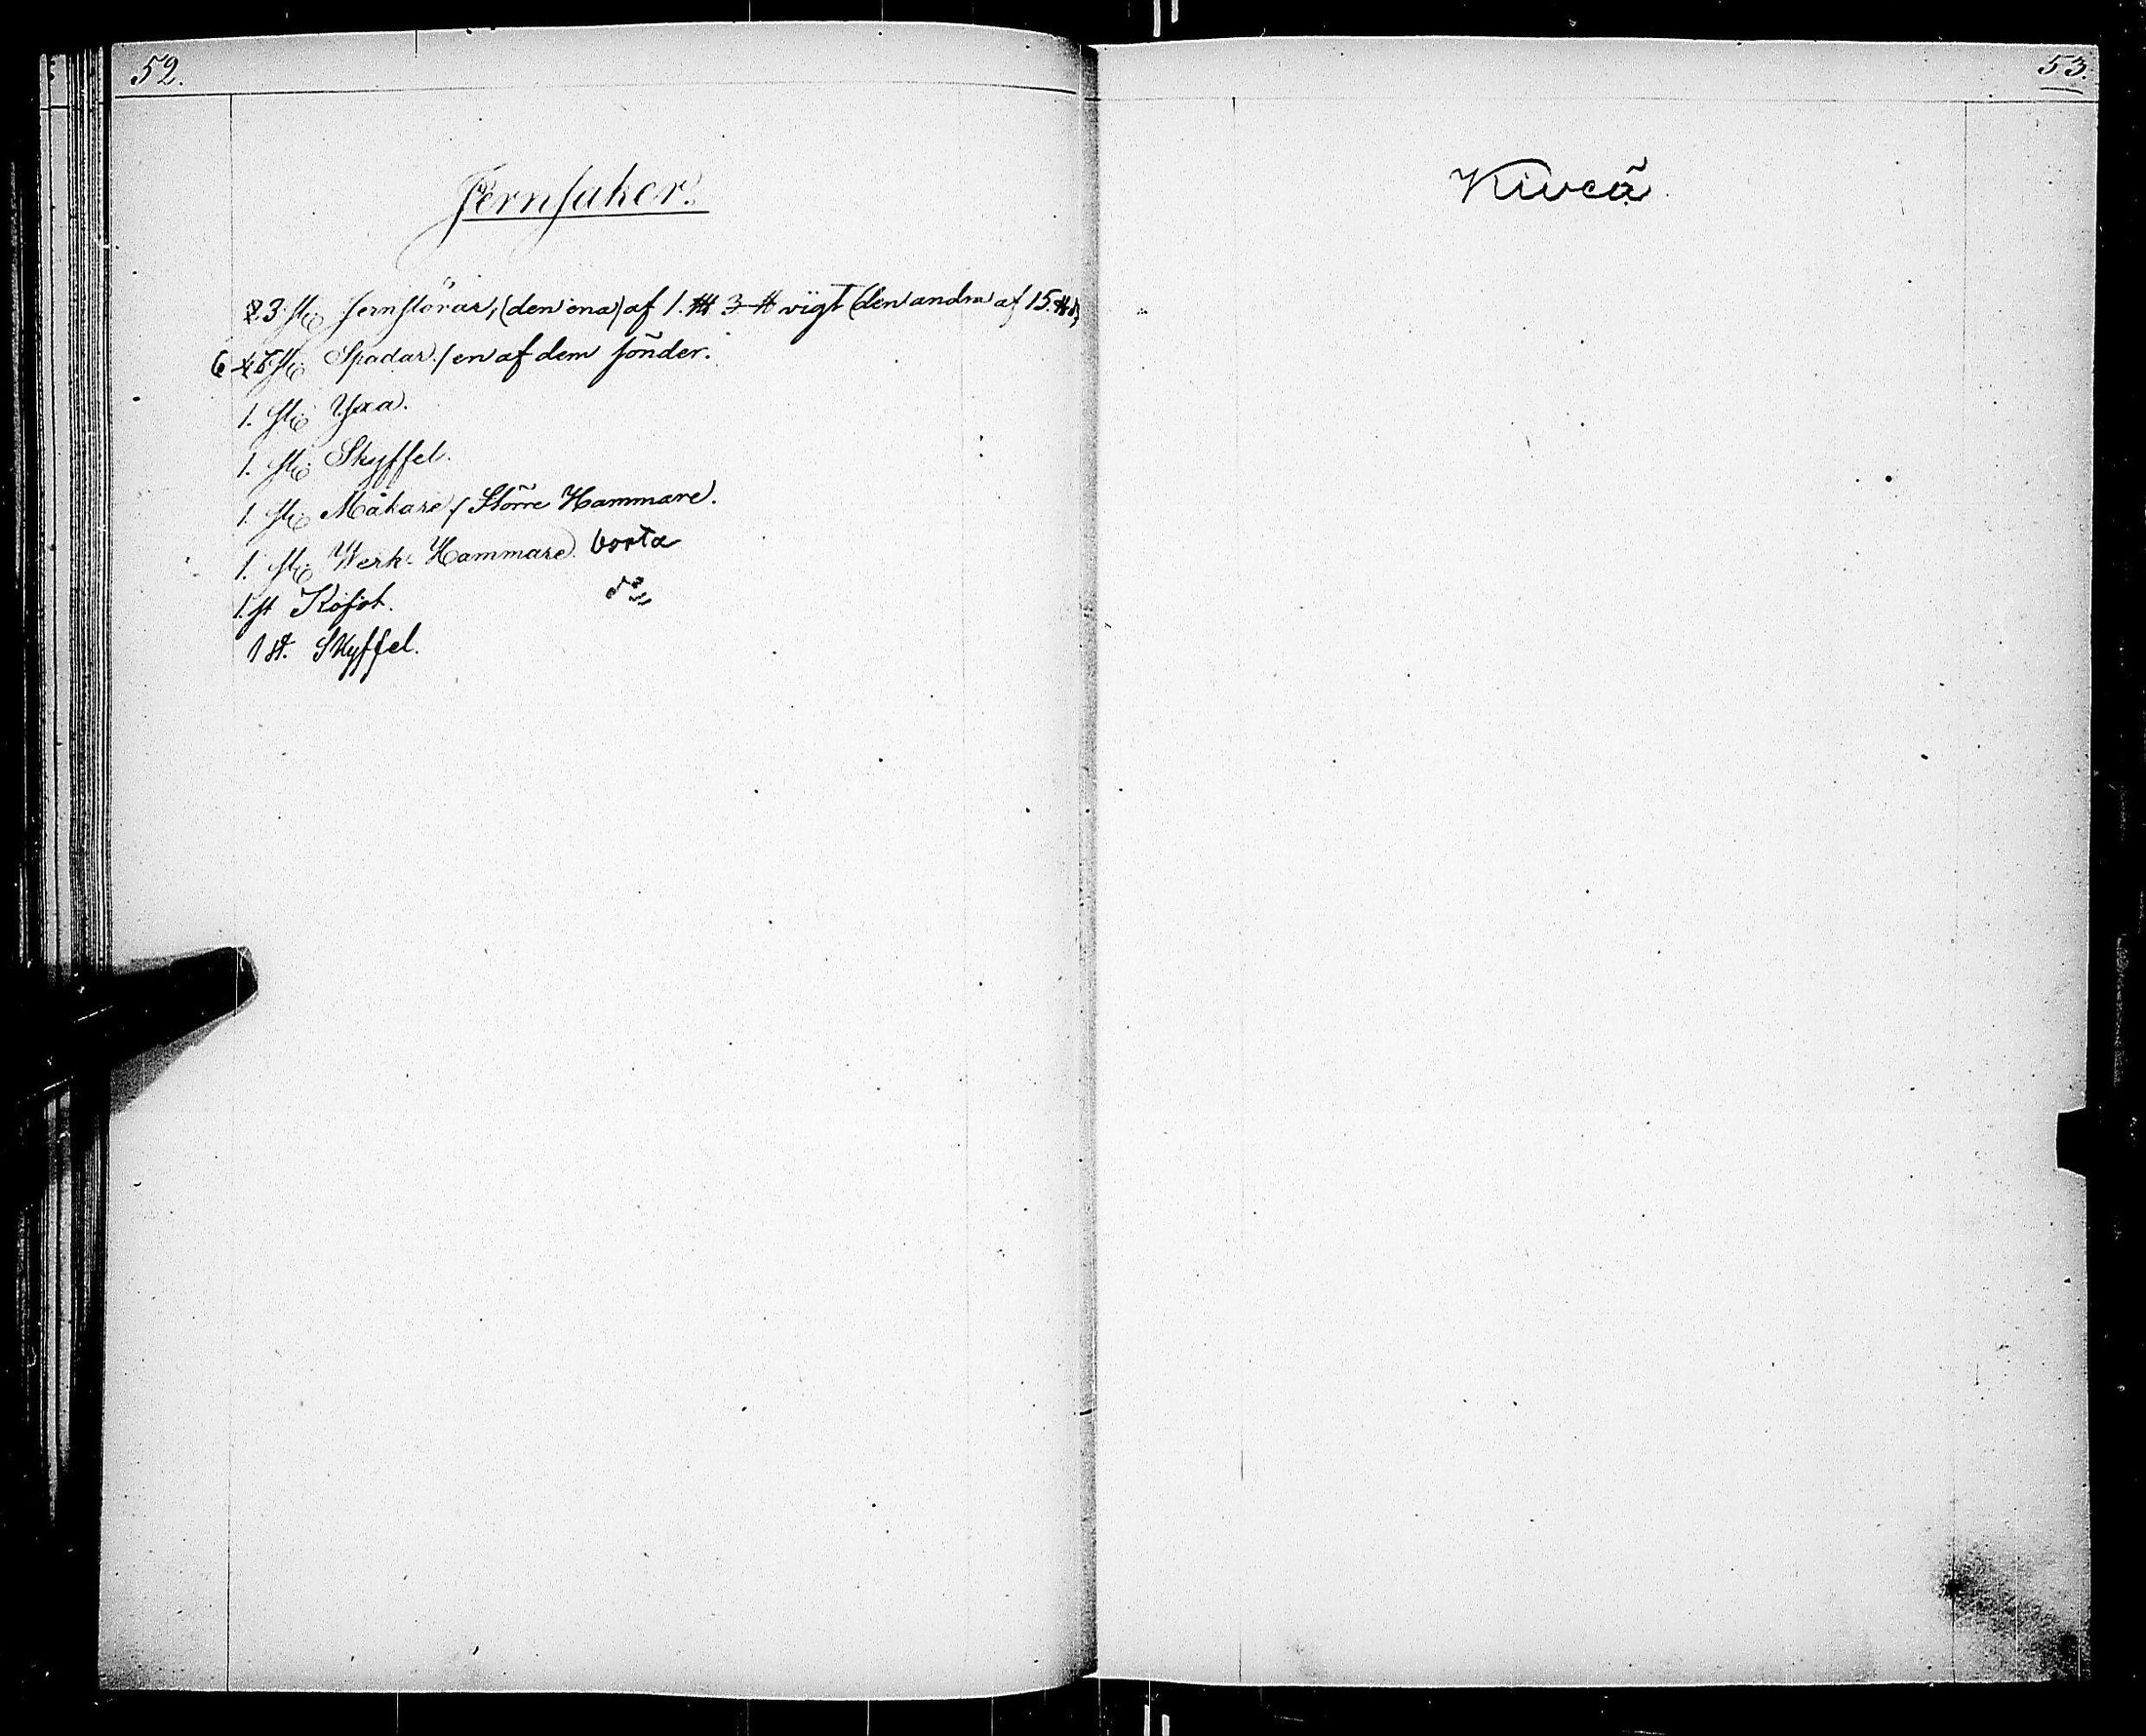 52.
Jernsaker.
3 st. Jernstörar, (den ena) af 1. 3 ℔ vigt (den andra af 15.
6 st. Spadar. / en af dem sönder.
1. st. Yxa.
1. st. Skyffel.
1. st. Måkare / Större Hammare.
1. st. Werk-Hammare borta
1. st Kofot. do
1 st. Skyffel.
53.
Kiveä